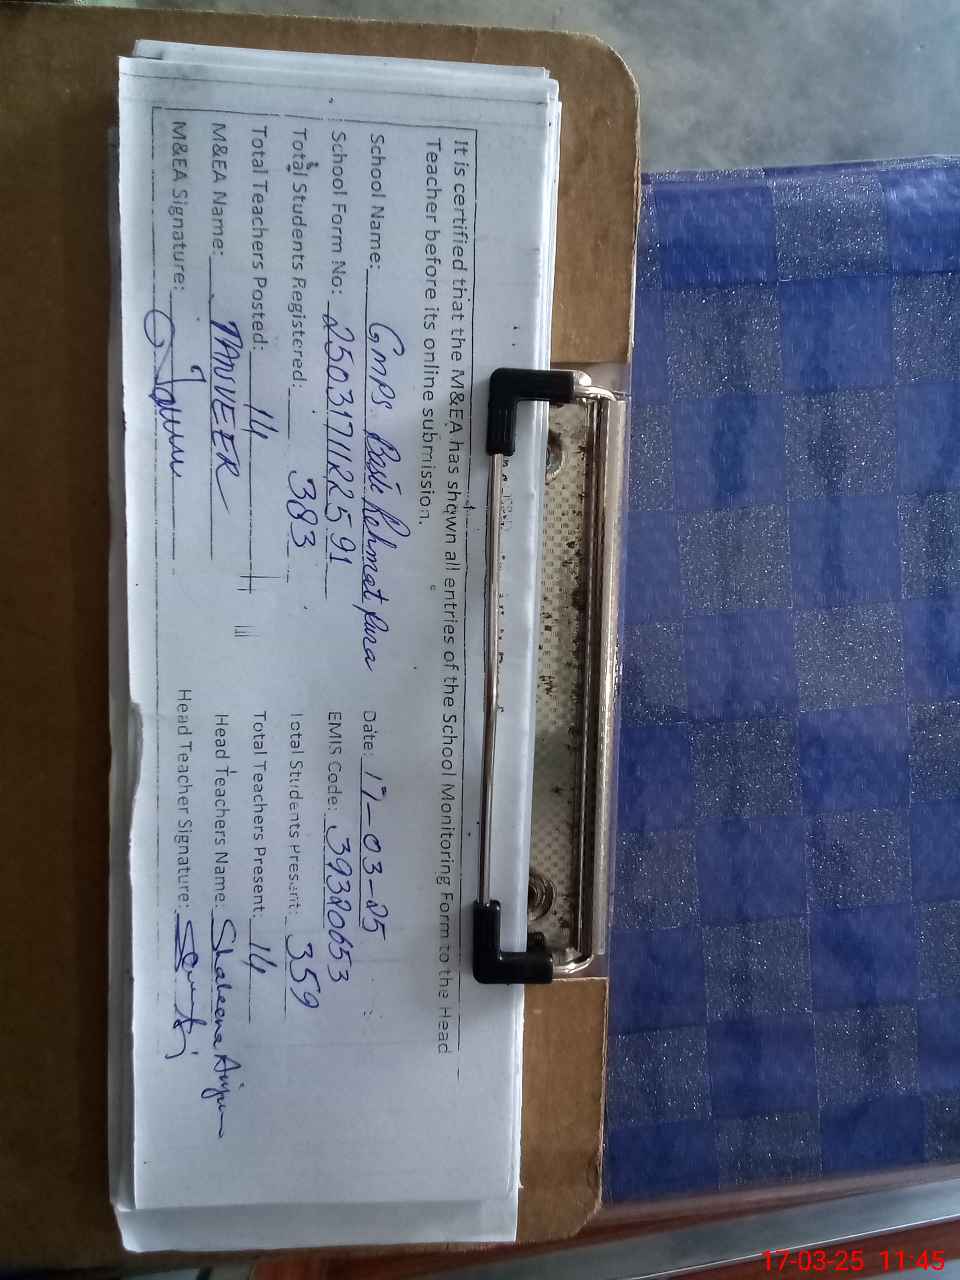 It is certified that the M&EA has shown all entries of the School Monitoring Form to the Head
Teacher before its online submission.
School Name: GMPS. Basti Rehmat Pura Date: 17-03-25
School Form No: 25031711225 91 EMIS Code: 39320653
Total Students Registered: 383 Total Students Present: 359
Total Teachers Posted: 14 Total Teachers Present: 14
M&EA Name: TANVEER Head Teachers Name: Shaheena Anjum
M&EA Signature: Head Teacher Signature:
17-03-25 11:45